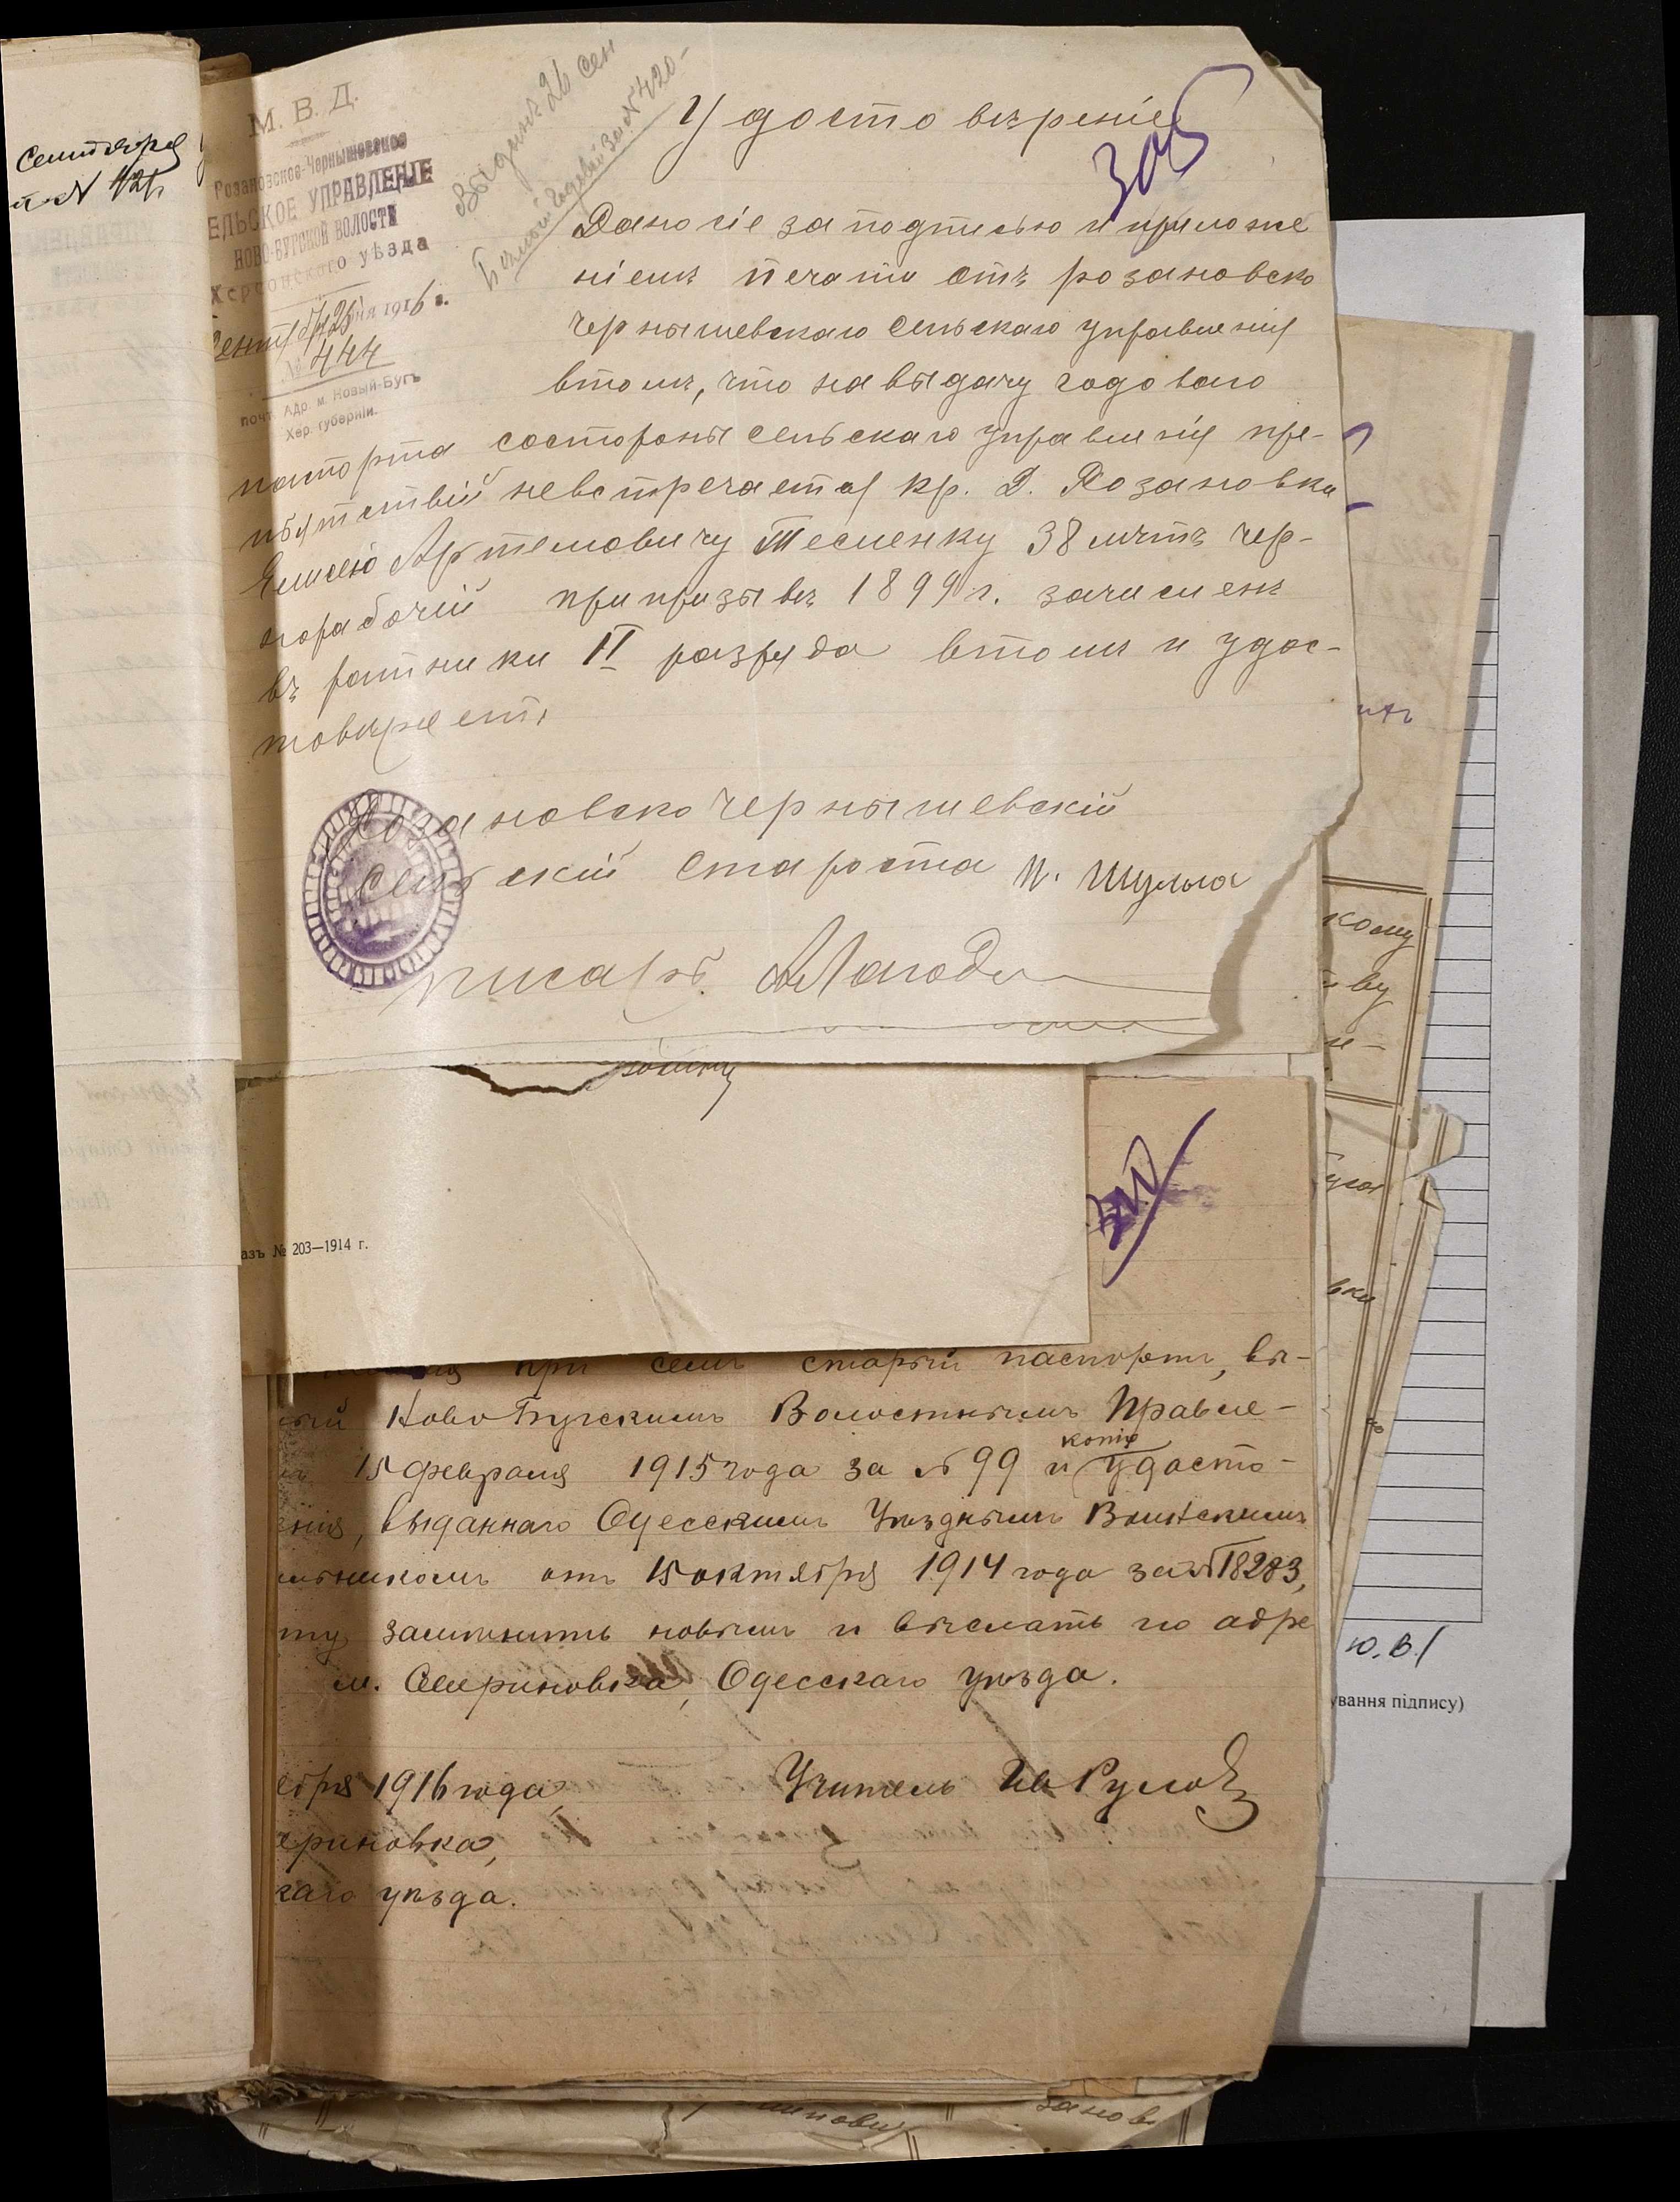 Сентября
М. В. Д.
Розановское-Чернышевское
ЕЛЬСКОЕ УПРАВЛЕНІЕ
НОВО-БУГСКОЙ ВОЛОСТИ
Херсонскаго уѣзда
Сентября 25 дня 1916 г.
№ 444
почт. Адр. м. Новый-Бугъ
Хер. губерніи.
Выданъ 26 Сен
годовой за № 420-
Удостовѣреніе
305
Дано сіе за подписью и приложе
ніемъ печати отъ розановско
чернышевскаго сельскаго управленія
втомъ, что на выдачу годоваго
паспорта состороны сельскаго управленія пре-
пятствій невстречается кр. д. Розановки
Елисею Артемовичу Тесленку 38 лѣтъ чер-
норабочій при призывѣ 1899 г. зачисленъ
въ ратники II разряда втомъ и удос-
товѣряетъ
Розановско Чернышевскій
Сельскій Староста П. Шульга
писарь
азъ № 203—1914 г.
при семъ старый паспортъ, вы-
ный Ново Бугскимъ Волостнымъ Правле-
15 февраля 1915 года за № 99 и копія удосто-
енія, выданнаго Одесскимъ Уѣзднымъ Воинскимъ
льникомъ отъ 15 октября 1914 года за № 18283,
замѣнить новымъ и выслать по адре
м. Севериновка, Одесскаго уѣзда.
ября 1916 года,
Учитель Ив Руссов
ериновка,
каго уѣзда.
кому
ву
вки
ю.в.
ування підпису)
занов